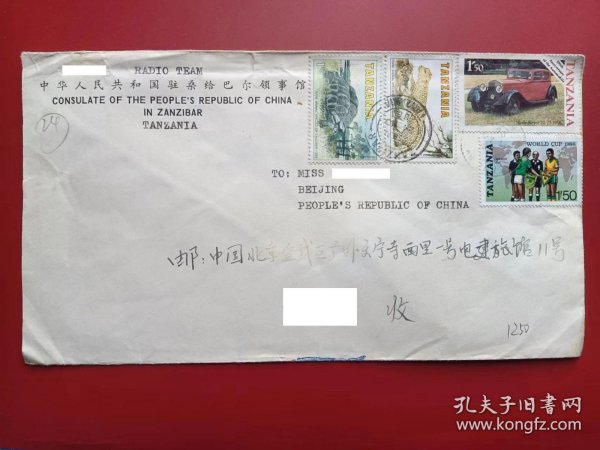 RADIO TEAM
中华人民共和国驻桑给巴尔领事馆
CONSULATE OF THE PEOPLE'S REPUBLIC OF CHINA
IN ZANZIBAR
TANZANIA
24
TANZANIA
TANZANIA
1'50
TANZANIA
WORLD CUP 1986
TANZANIA
1'50
TO: MISS
BEIJING
PEOPLE'S REPUBLIC OF CHINA
邮:中国北京宣武区广外天宁寺西里一号电建旅馆11号
收
1250
孔夫子旧书网
www.kongfz.com